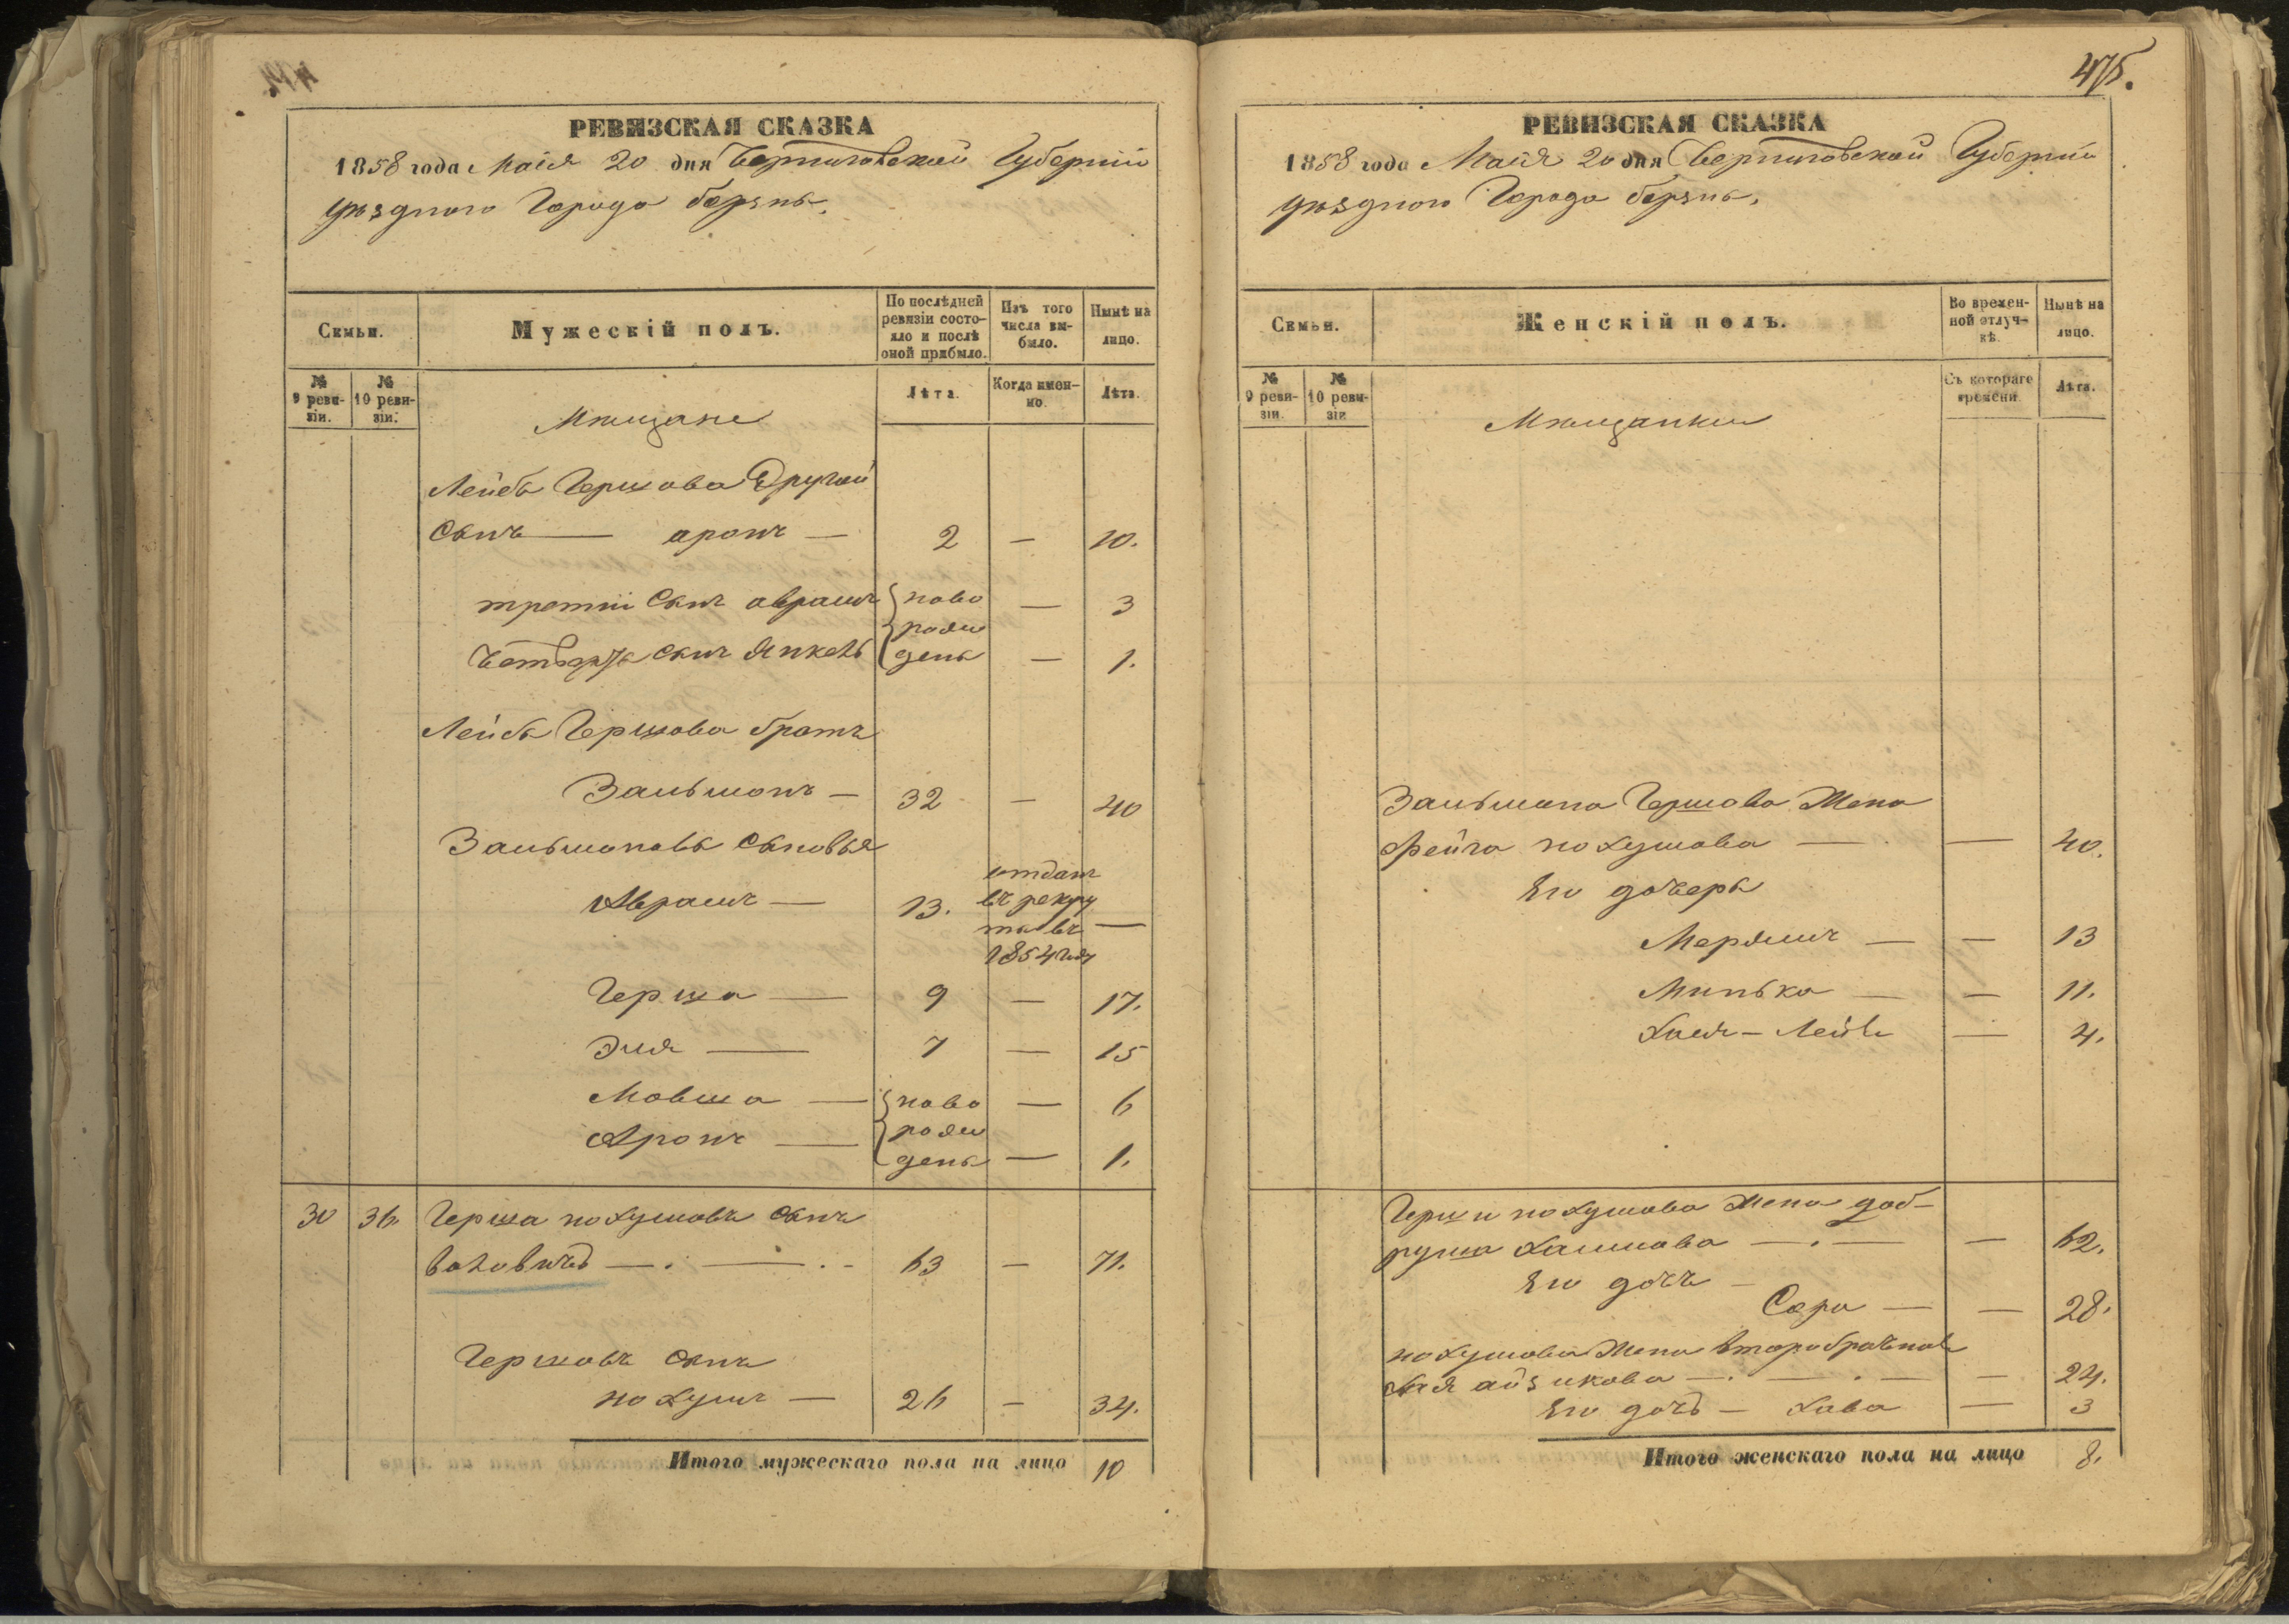 РЕВИЗСКАЯ СКАЗКА
1858 года Маія 20 дня Черниговской Губерніи
уѣзднаго Города борзны.
Семьи.
Мужескій полъ.
По послѣдней ревизіи состояло и послѣ оной прибыло.
Изъ того числа выбыло.
Нынѣ на лицо.
№ 9 ревизіи.
№ 10 ревизіи.
Лѣта.
Когда именно.
Лѣта.
Мѣщане
Лейбы Гершова Другой
Сынъ — аронъ — 2 — 10.
третій Сынъ аврамъ ново — 3
рож
Четвертый Сынъ Янкель дены — 1.
Лейбы Гершова братъ
Зальмонъ — 32 — 40
Зальмоновы Сыновья
Аврамъ — 13. отданъ въ рекруты въ 1854 году —
Герша — 9 — 17.
Эля — 7 — 15
Мовша — ново — 6
рож
Аронъ — дены — 1.
30 36. Герша нохумовъ Сынъ
Воловичъ — . — . - 63 — 71.
Гершовъ Сынъ
нохумъ — 26 — 34.
Итого мужескаго пола на лицо 10
475.
РЕВИЗСКАЯ СКАЗКА
1858 года Маія 20 дня Черниговской Губерніи
уѣзднаго Города борзны.
Семьи.
Женскій полъ.
Во временной отлучкѣ.
Нынѣ на лицо.
№ 9 ревизіи.
№ 10 ревизіи
Съ котораго времени
Лѣта.
Мѣщанки
Зальмона Гершова Жена
Фейга нохумова — — 40.
Его дочеры
Мерямъ — — 13
Минька — — 11.
Хая – Лея — 4.
Герши нохумова Жена доб-
руша Хаимова — . — — 62.
Его дочъ –
Сора — — 28.
нохумова Жена второбрачная
Хая айзикова — . — . — — 24.
Его дочъ — Хава — 3
Итого женскаго пола на лицо 8.